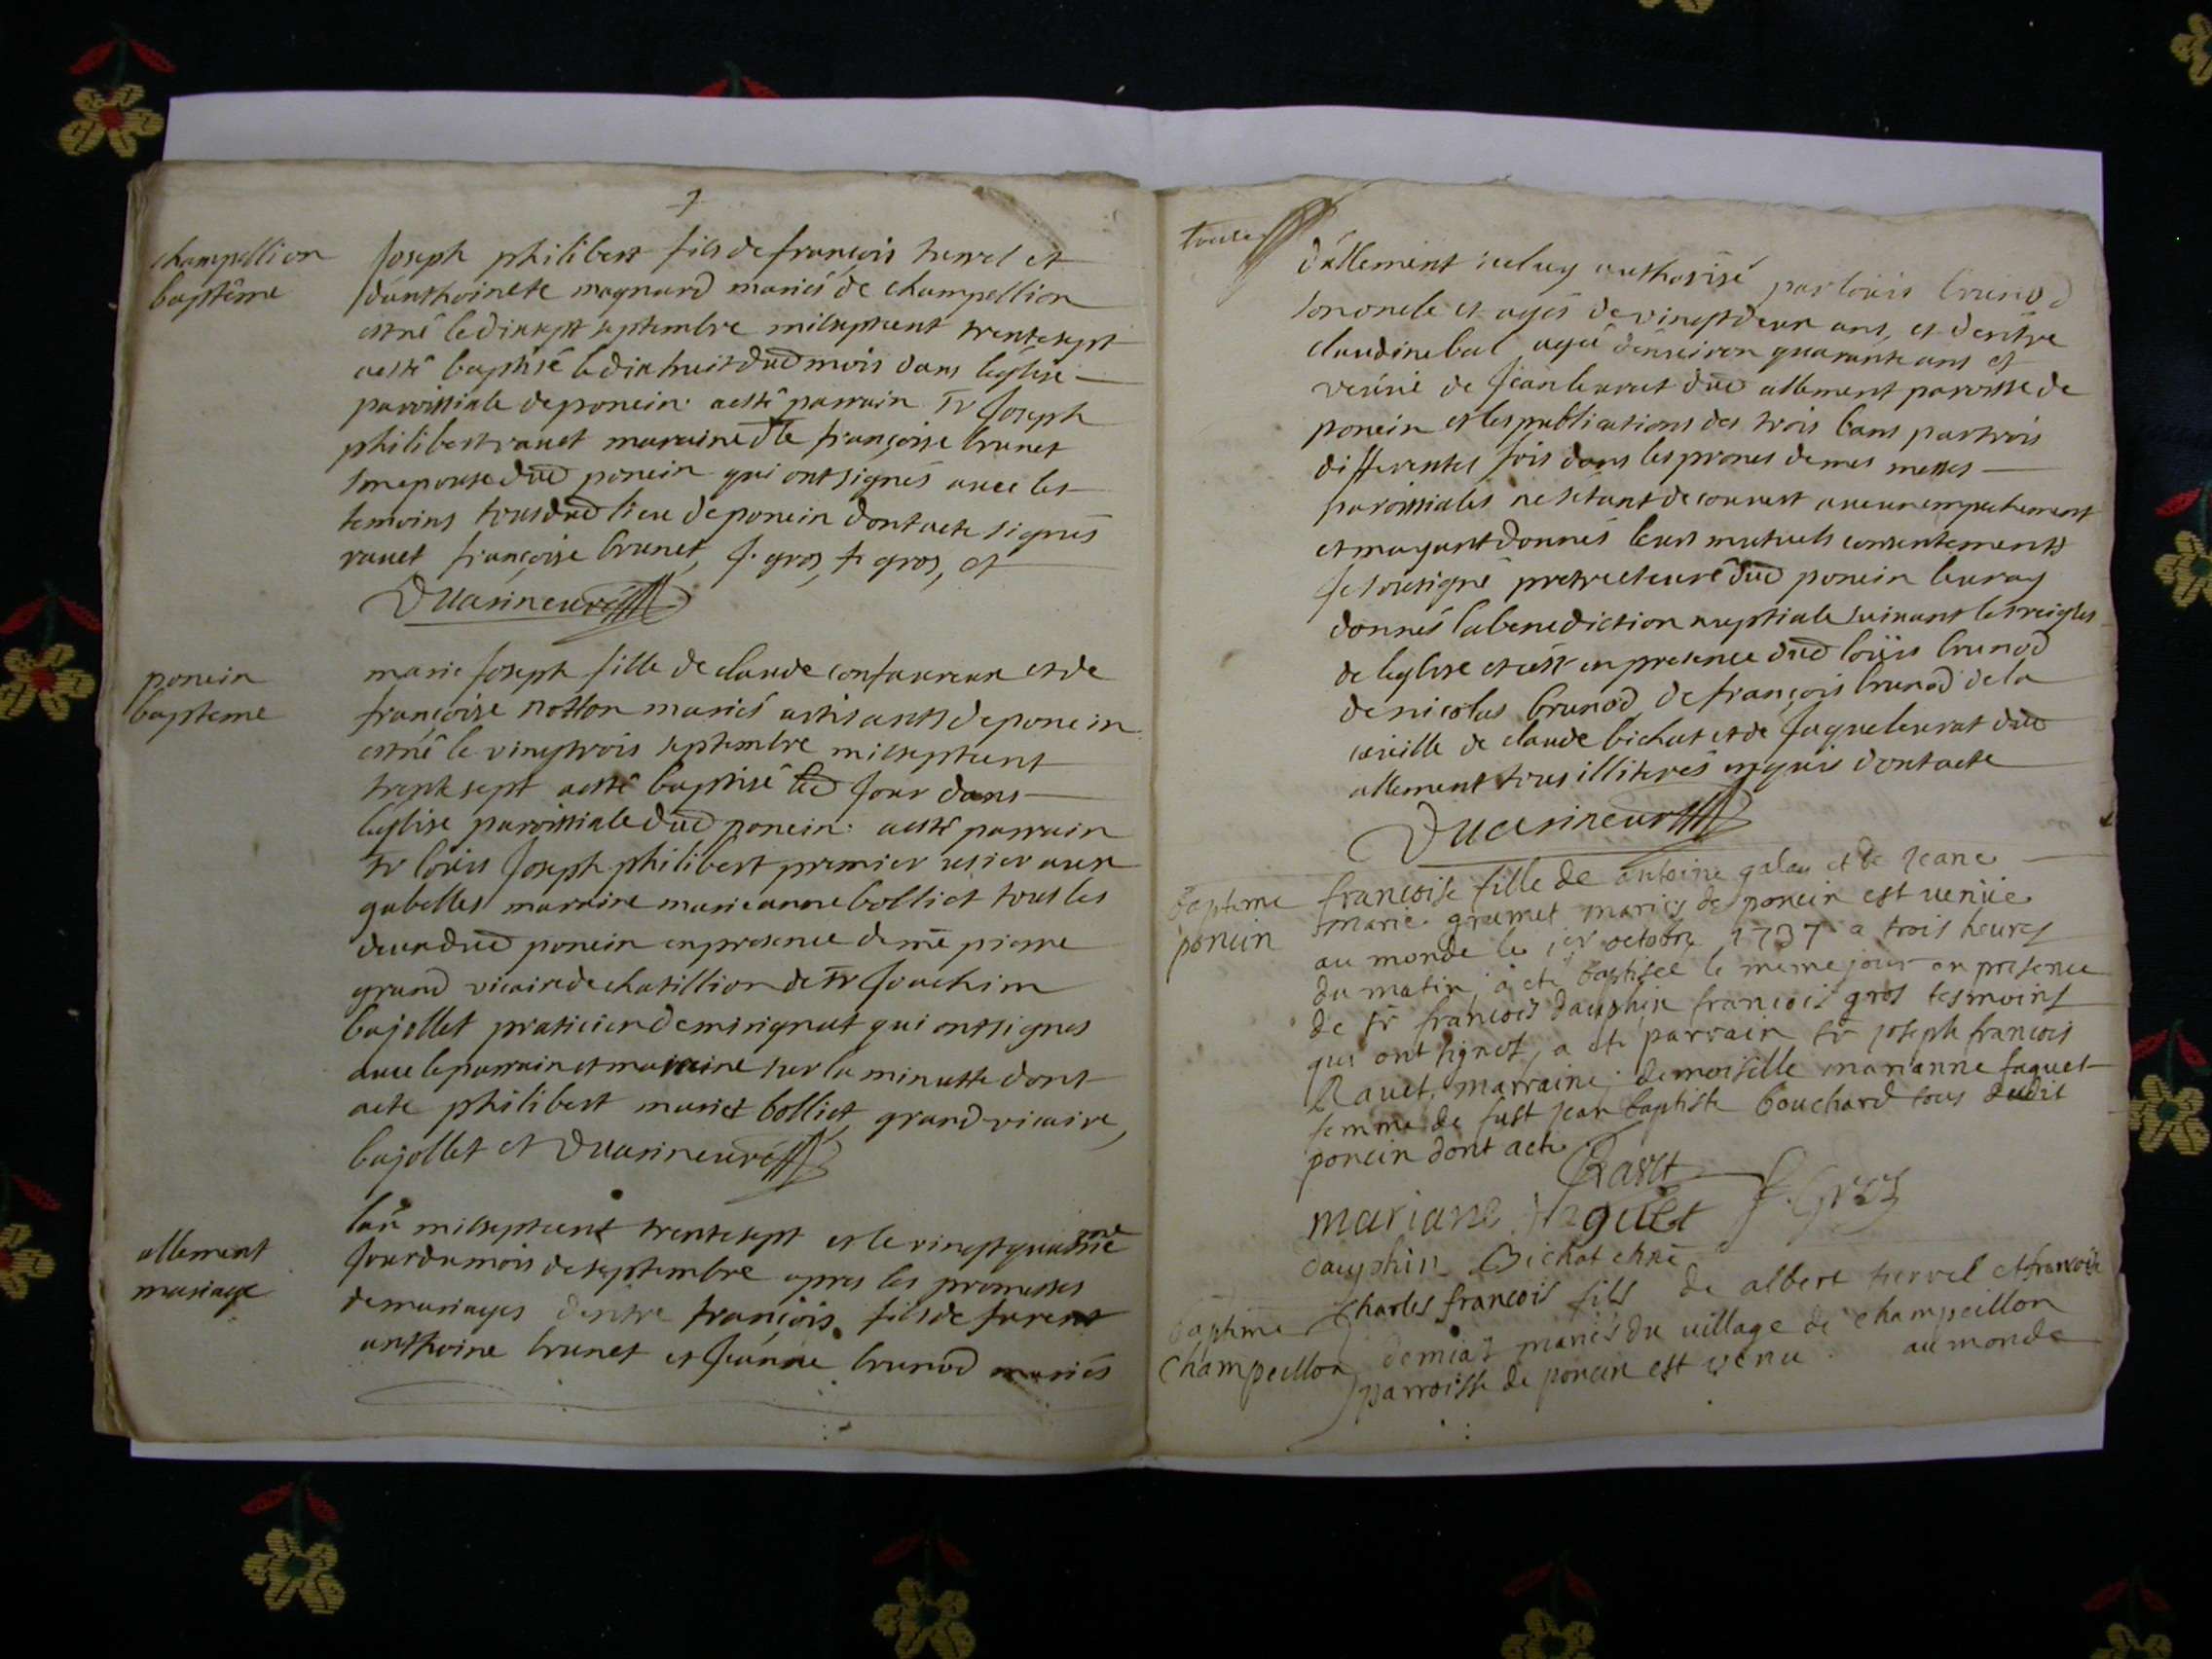 champellion
baptême
Joseph philibert fils de françois hervel et
d'anthoinete magnard mariés de champellion
est né le dix sept septembre mil sept cent trente sept
a esté baptisé le dix huit dud mois dans l'eglise
paroissiale de poncin. a esté parrain Sr Joseph
philibert ravet maraine dlle françoise brunet
son epouse dud poncin qui ont signés avec les
temoins tous dud lieu de poncin dont acte signés
ravet françoise brunet, f. gros, fr gros, et
poncin
bapteme
marie Joseph fille de claude confavreux et de
françoise notton mariés artisants de poncin
est né le vingt trois septembre mil sept cent
trente sept a esté baptisé led Jour dans
l'eglise paroissiale dud poncin. a esté parrain
Sr loüis Joseph philibert premier usier aux
gabelles maraine marie anne bolliet tous les
deux dud poncin en presence de me pierre
grand vicaire de chatillion de Sr Joachim
bajollet praticien de mirignat qui ont signés
avec le parrain et maraine sur la minutte dont
acte philibert marie bolliet grand vicaire,
bajollet et
allement
mariage
l'an mil sept cent trente sept et le vingt quatrieme
Jour du mois de septembre apres les promesses
de mariages d'entre françois fils de furent
anthoine brunet et Jeanne brunod mariés
d'allement iceluy authorisé par loüis brunod
son oncle et agés de vingt deux ans, et d'entre
claudine bal agée d'environ quarante ans et
veuve de Jean leurat dud allement paroisse de
poncin et les publications des trois bans par trois
differentes fois dans les prones de mes messes
paroissiales ne s'etant decouvert aucun empechement
et m'ayant donnés leurs mutuels consentements
Je sousigné pretre et curé dud poncin leur ay
donnés la benediction nuptiale suivant les reigles
de l'eglise et c'est en presence dud loüis brunod
de nicolas brunod de françois brunod de la
cueille de claude bichat et de Jaque leurat dud
allement tous illiterés enquis dont acte
bapteme
poncin
francoise fille de antoine galay et de jeane
marie grumet mariés de poncin est venüe
au monde le 1er octobre 1737 a trois heures
du matin, a ete baptisee le meme jour en presence
de sr francois dauphin francois gros tesmoins
qui ont signes, a ete parrain sr joseph francois
Ravet, marraine demoiselle marianne faguet
femme de fust jean baptiste bouchard tous dudit
poncin dont acte
Ravet
mariane faguet f. Gros
dauphin Bichat
baptême
Champeillon
Charles francois fils de albert hervel et francoise
demiat mariés du village de champeillon
parroisse de poncin est venu au monde